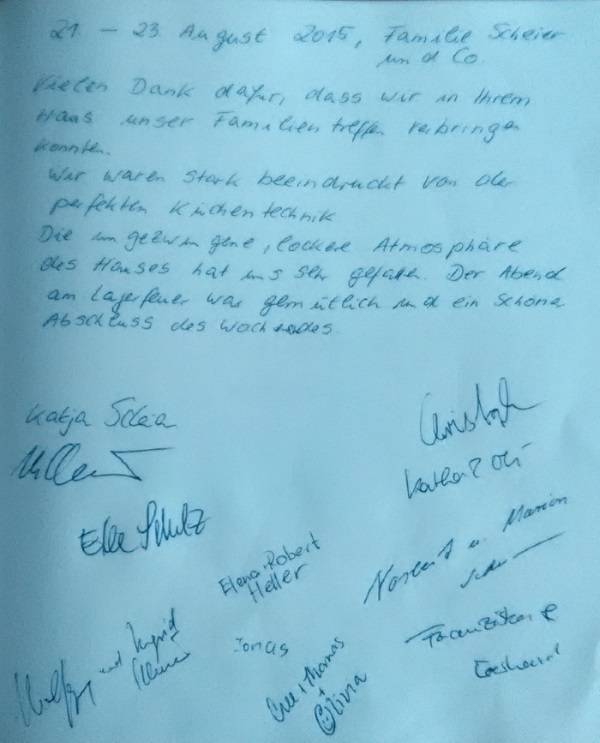 21. – 23. August 2015, Familie Scheier
und Co.
Vielen Dank dafür, dass wir in Ihrem
Haus unser Familientreffen verbringen
konnten.
Wir waren stark beeindruckt von der
perfekten Küchentechnik
Die ungezwungene, lockere Atmosphäre
des Hauses hat uns sehr gefallen. Der Abend
am Lagerfeuer war gemütlich und ein schöner
Abschluss des Wochenendes.
Katja
Christoph
Elke Schulz
Elena + Robert
Heller
Norbert u. Marion
Wolfgang und Ingrid
Jonas
+ Thomas
+
Olivia
Franziska &